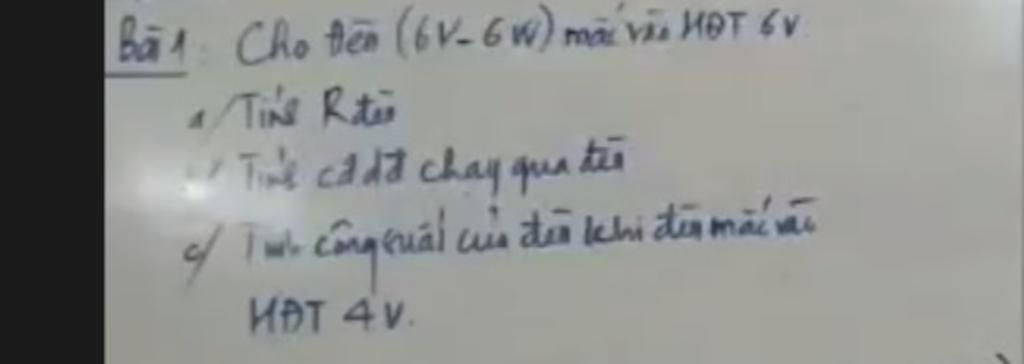 Bài 1: Cho đèn (6V-6W) mắc vào HĐT 6V.
a/ Tính R đèn
b/ Tính cđdđ chạy qua đèn
c/ Tính công suất của đèn khi đèn mắc vào
HĐT 4V.